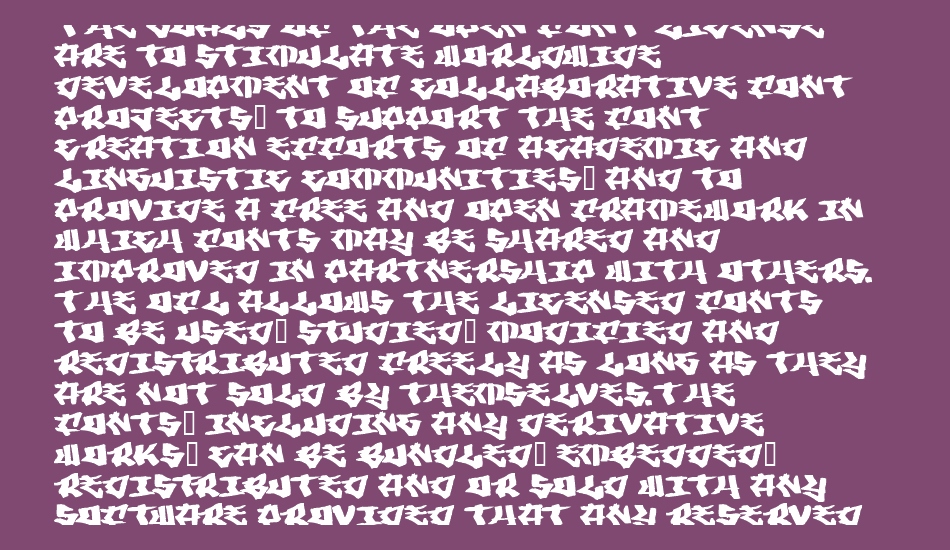 THE GOALS OF THE OPEN FONT LICENSE
ARE TO STIMULATE WORLDWIDE
DEVELOPMENT OF COLLABORATIVE FONT
PROJECTS▯ TO SUPPORT THE FONT
CREATION EFFORTS OF ACADEMIC AND
LINGUISTIC COMMUNITIES▯ AND TO
PROVIDE A FREE AND OPEN FRAMEWORK IN
WHICH FONTS MAY BE SHARED AND
IMPROVED IN PARTNERSHIP WITH OTHERS.
THE OFL ALLOWS THE LICENSED FONTS
TO BE USED▯ STUDIED▯ MODIFIED AND
REDISTRIBUTED FREELY AS LONG AS THEY
ARE NOT SOLD BY THEMSELVES.THE
FONTS▯ INCLUDING ANY DERIVATIVE
WORKS▯ CAN BE BUNDLED▯ EMBEDDED▯
REDISTRIBUTED AND OR SOLD WITH ANY
SOFTWARE PROVIDED THAT ANY RESERVED